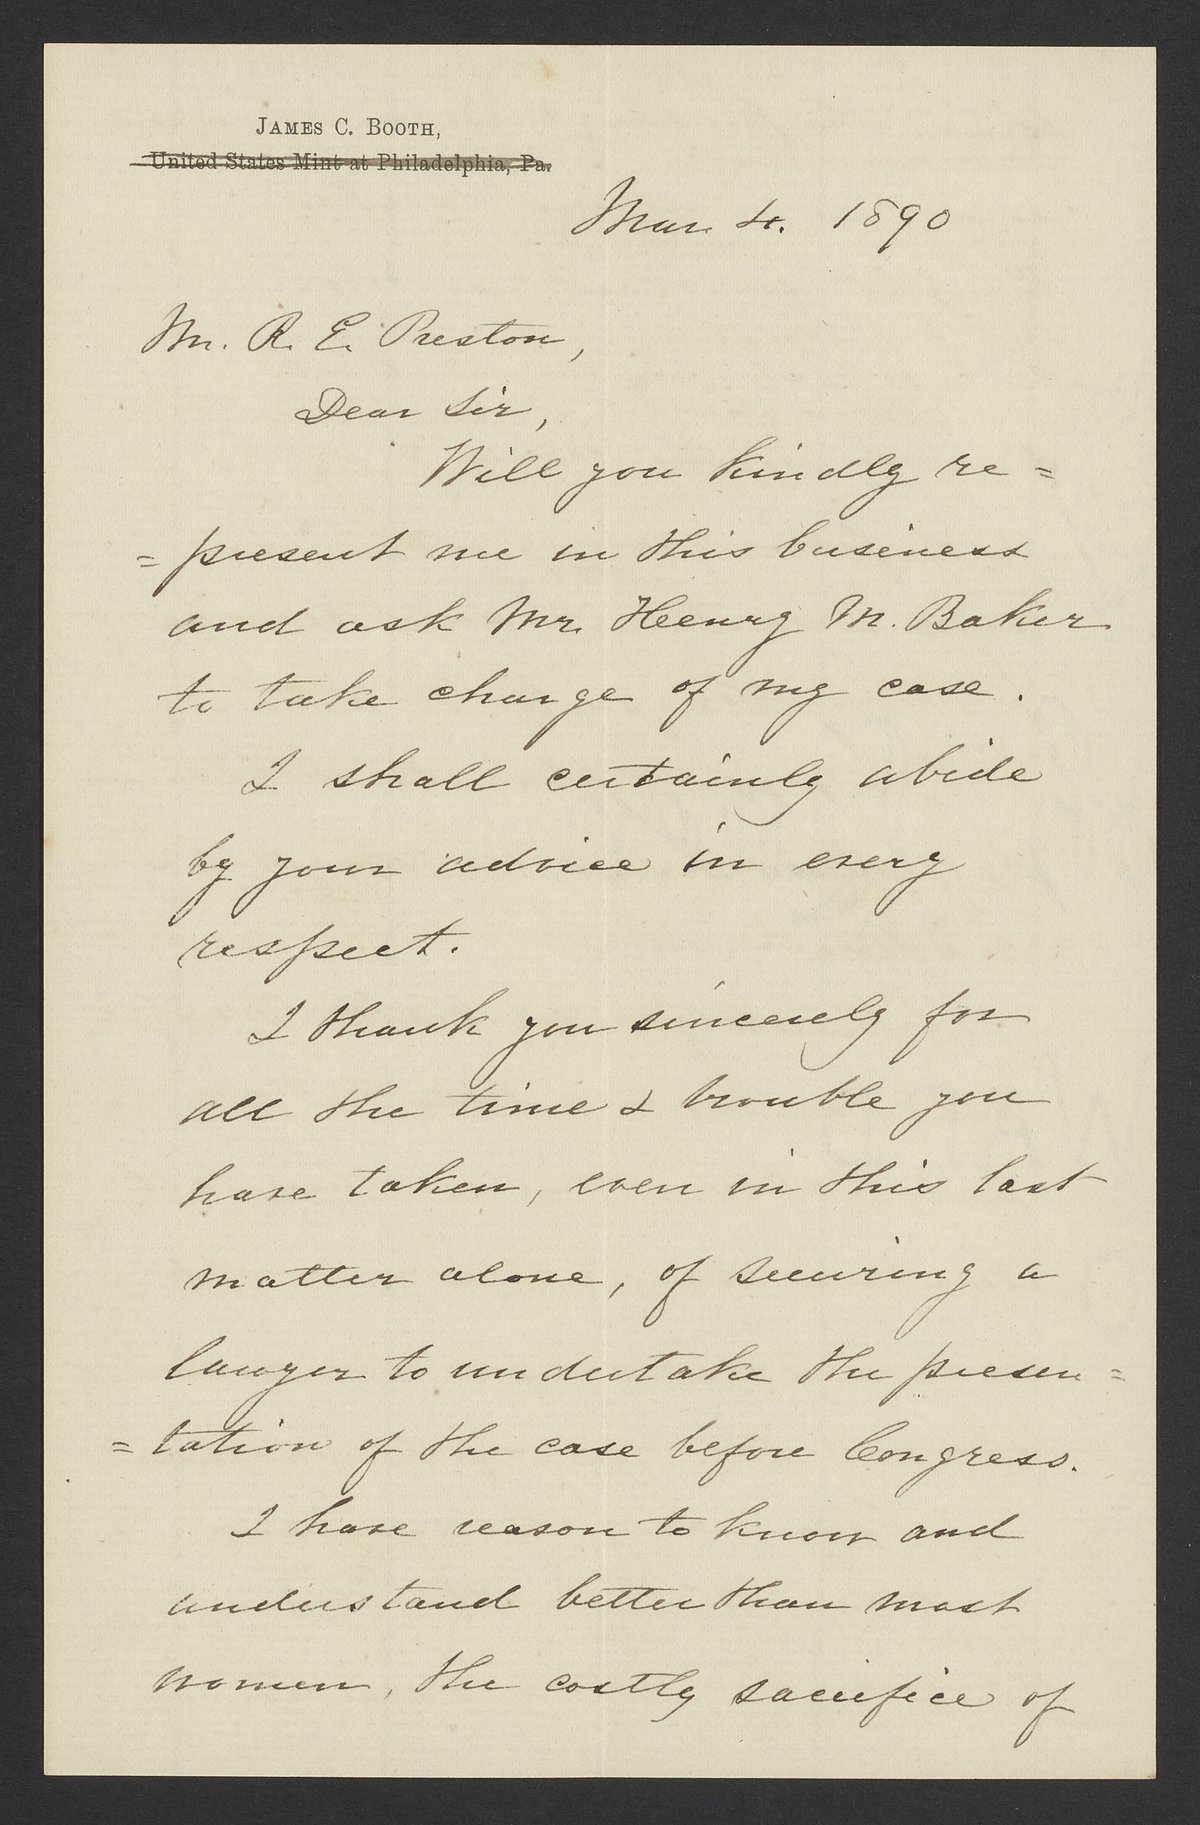 James C. Booth,
United States Mint at Philadelphia, Pa.
Mar. 4. 1890
Mr. R. E. Preston,
Dear Sir,
Will you kindly re=
=present me in this business
and ask Mr. Henry M. Baker
to take charge of my case.
I shall certainly abide
by your advice in every
respect.
I thank you sincerely for
all the time & trouble you
have taken, even in this last
matter alone, of securing a
lawyer to undertake the presen=
=tation of the case before Congress.
I have reason to know and
understand better than most
women, the costly sacrifice of